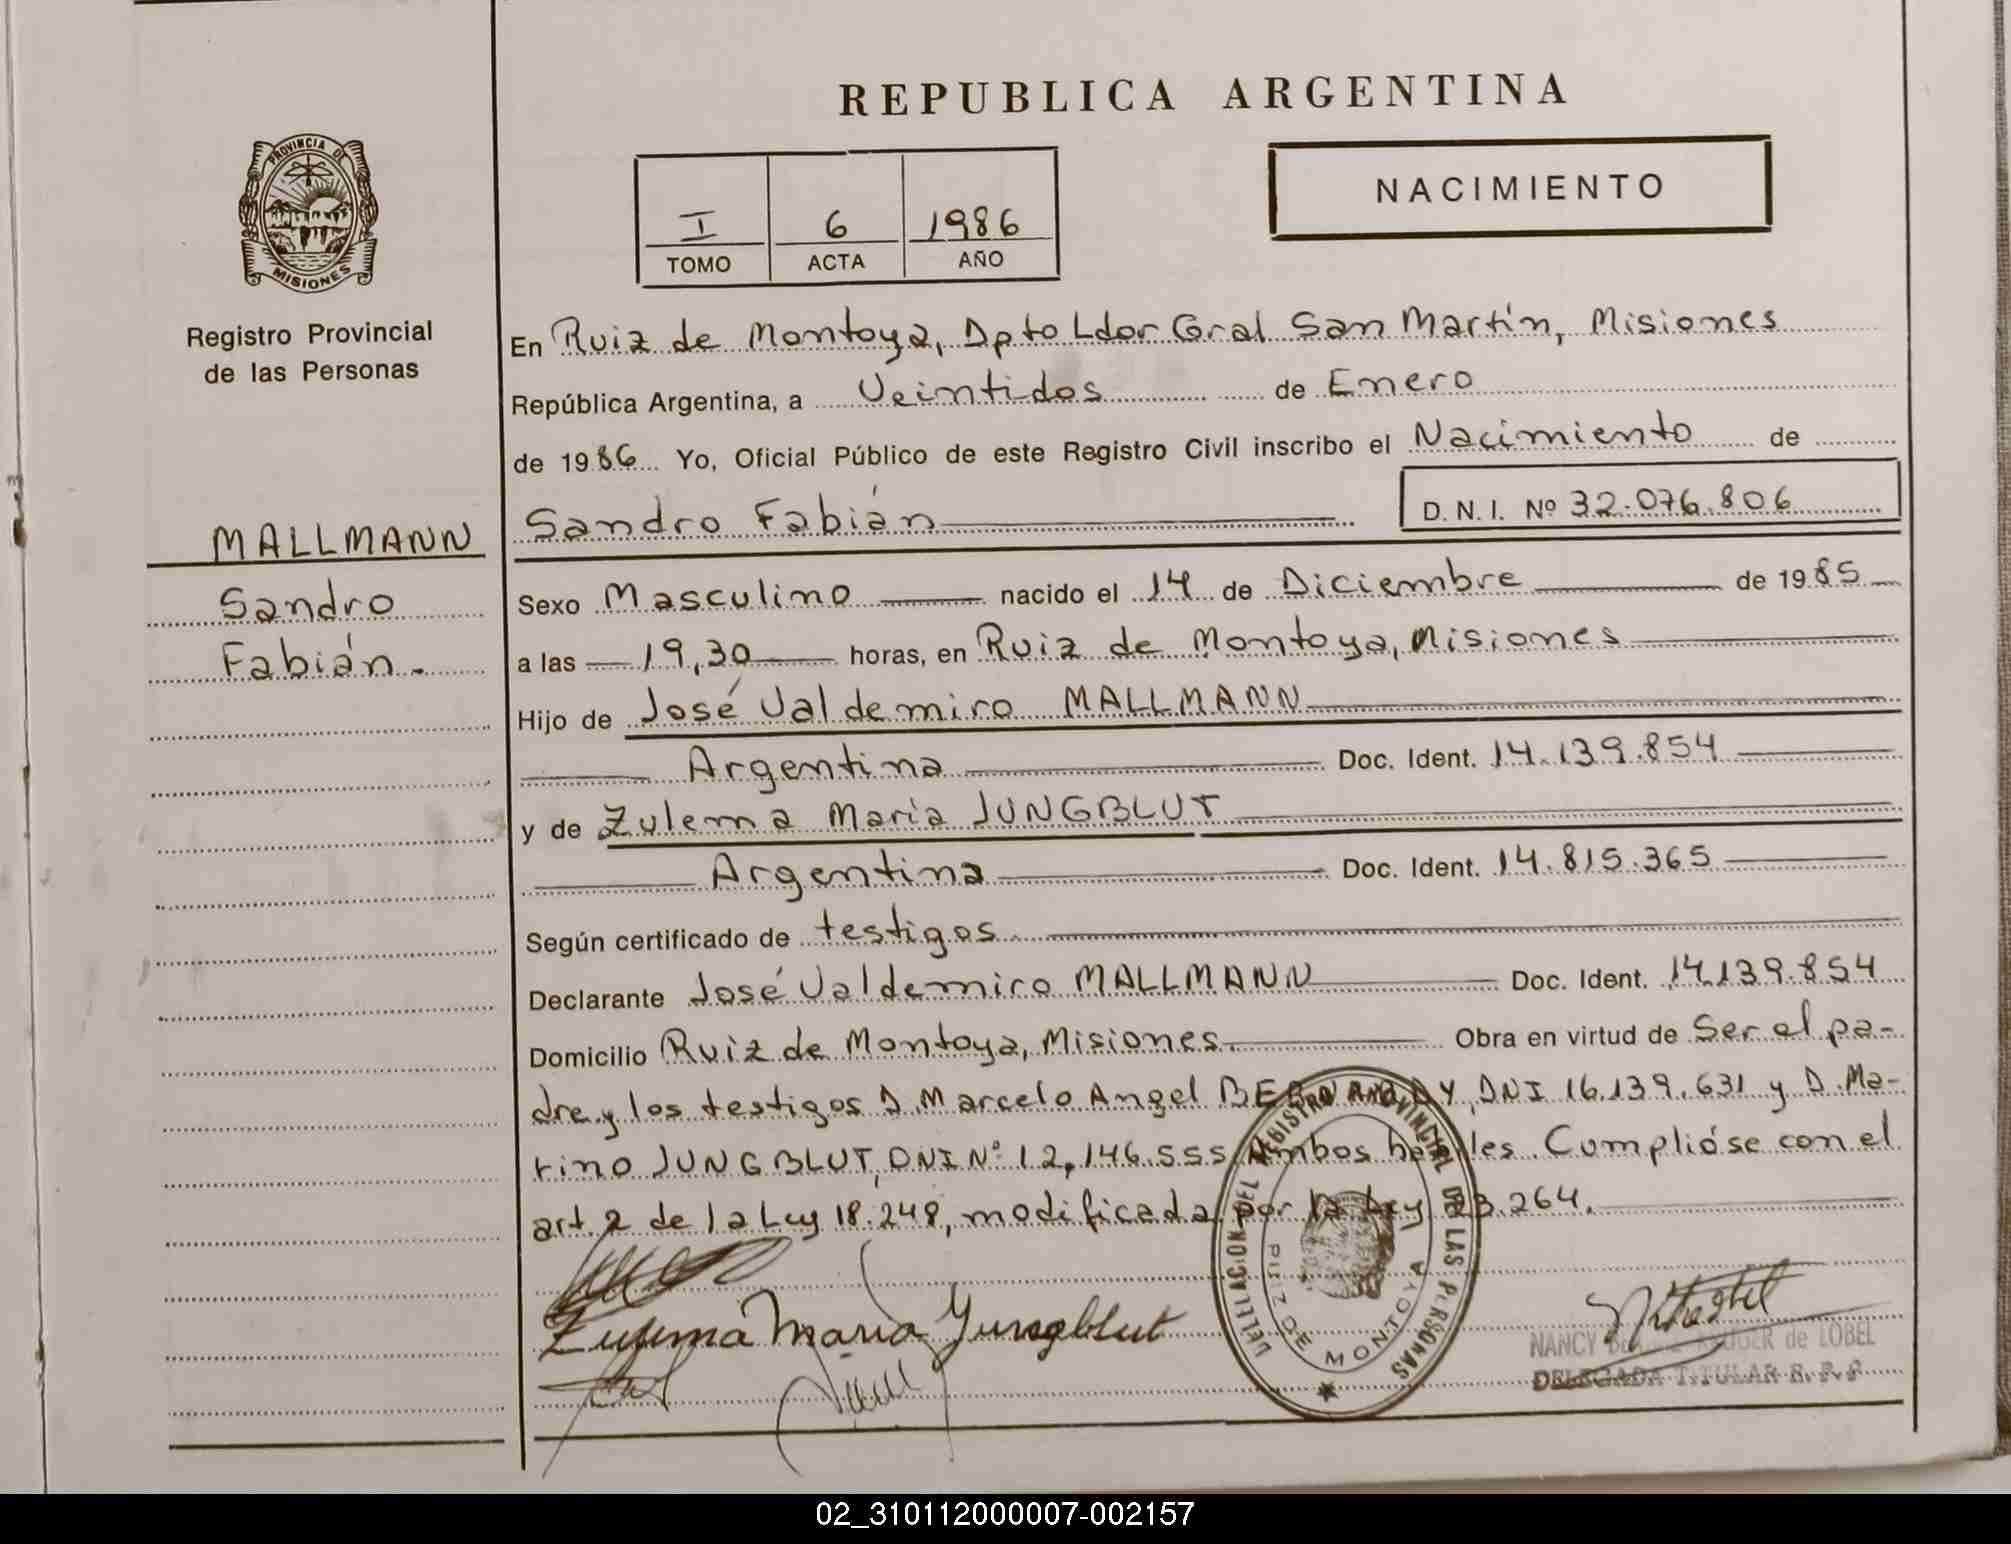 REPUBLICA ARGENTINA
PROVINCIA DE
MISIONES
Registro Provincial
de las Personas
NACIMIENTO
I 6 1986
TOMO ACTA AÑO
MALLMANN
Sandro
Fabián.-
En Ruiz de Montoya, Dpto Ldor Gral San Martín, Misiones
República Argentina, a Veintidos de Enero
de 1986 Yo, Oficial Público de este Registro Civil inscribo el Nacimiento de
Sandro Fabián D.N.I. Nº 32.076.806
Sexo Masculino nacido el 14 de Diciembre de 1985
a las 19,30 horas, en Ruiz de Montoya, Misiones
Hijo de José Valdemiro MALLMANN
Argentina Doc. Ident. 14.139.854
y de Zulema María JUNGBLUT
Argentina Doc. Ident. 14.815.365
Según certificado de testigos
Declarante José Valdemiro MALLMANN Doc. Ident. 14.139.854
Domicilio Ruiz de Montoya, Misiones. Obra en virtud de Ser el pa-
dre y los testigos D. Marcelo Angel DNI 16.139.631 y D. Ma-
rino JUNGBLUT, DNI Nº 12.146.555 Ambos hábiles. Cumplióse con el
art. 2 de la Ley 18.248, modificada por la Ley 23.264.
Zulema María Jungblut
DELEGACION DEL REGISTRO PROVINCIAL DE LAS PERSONAS
RUIZ DE MONTOYA
NANCY de LOBEL
DELEGADA TITULAR R. P. P
02_310112000007-002157